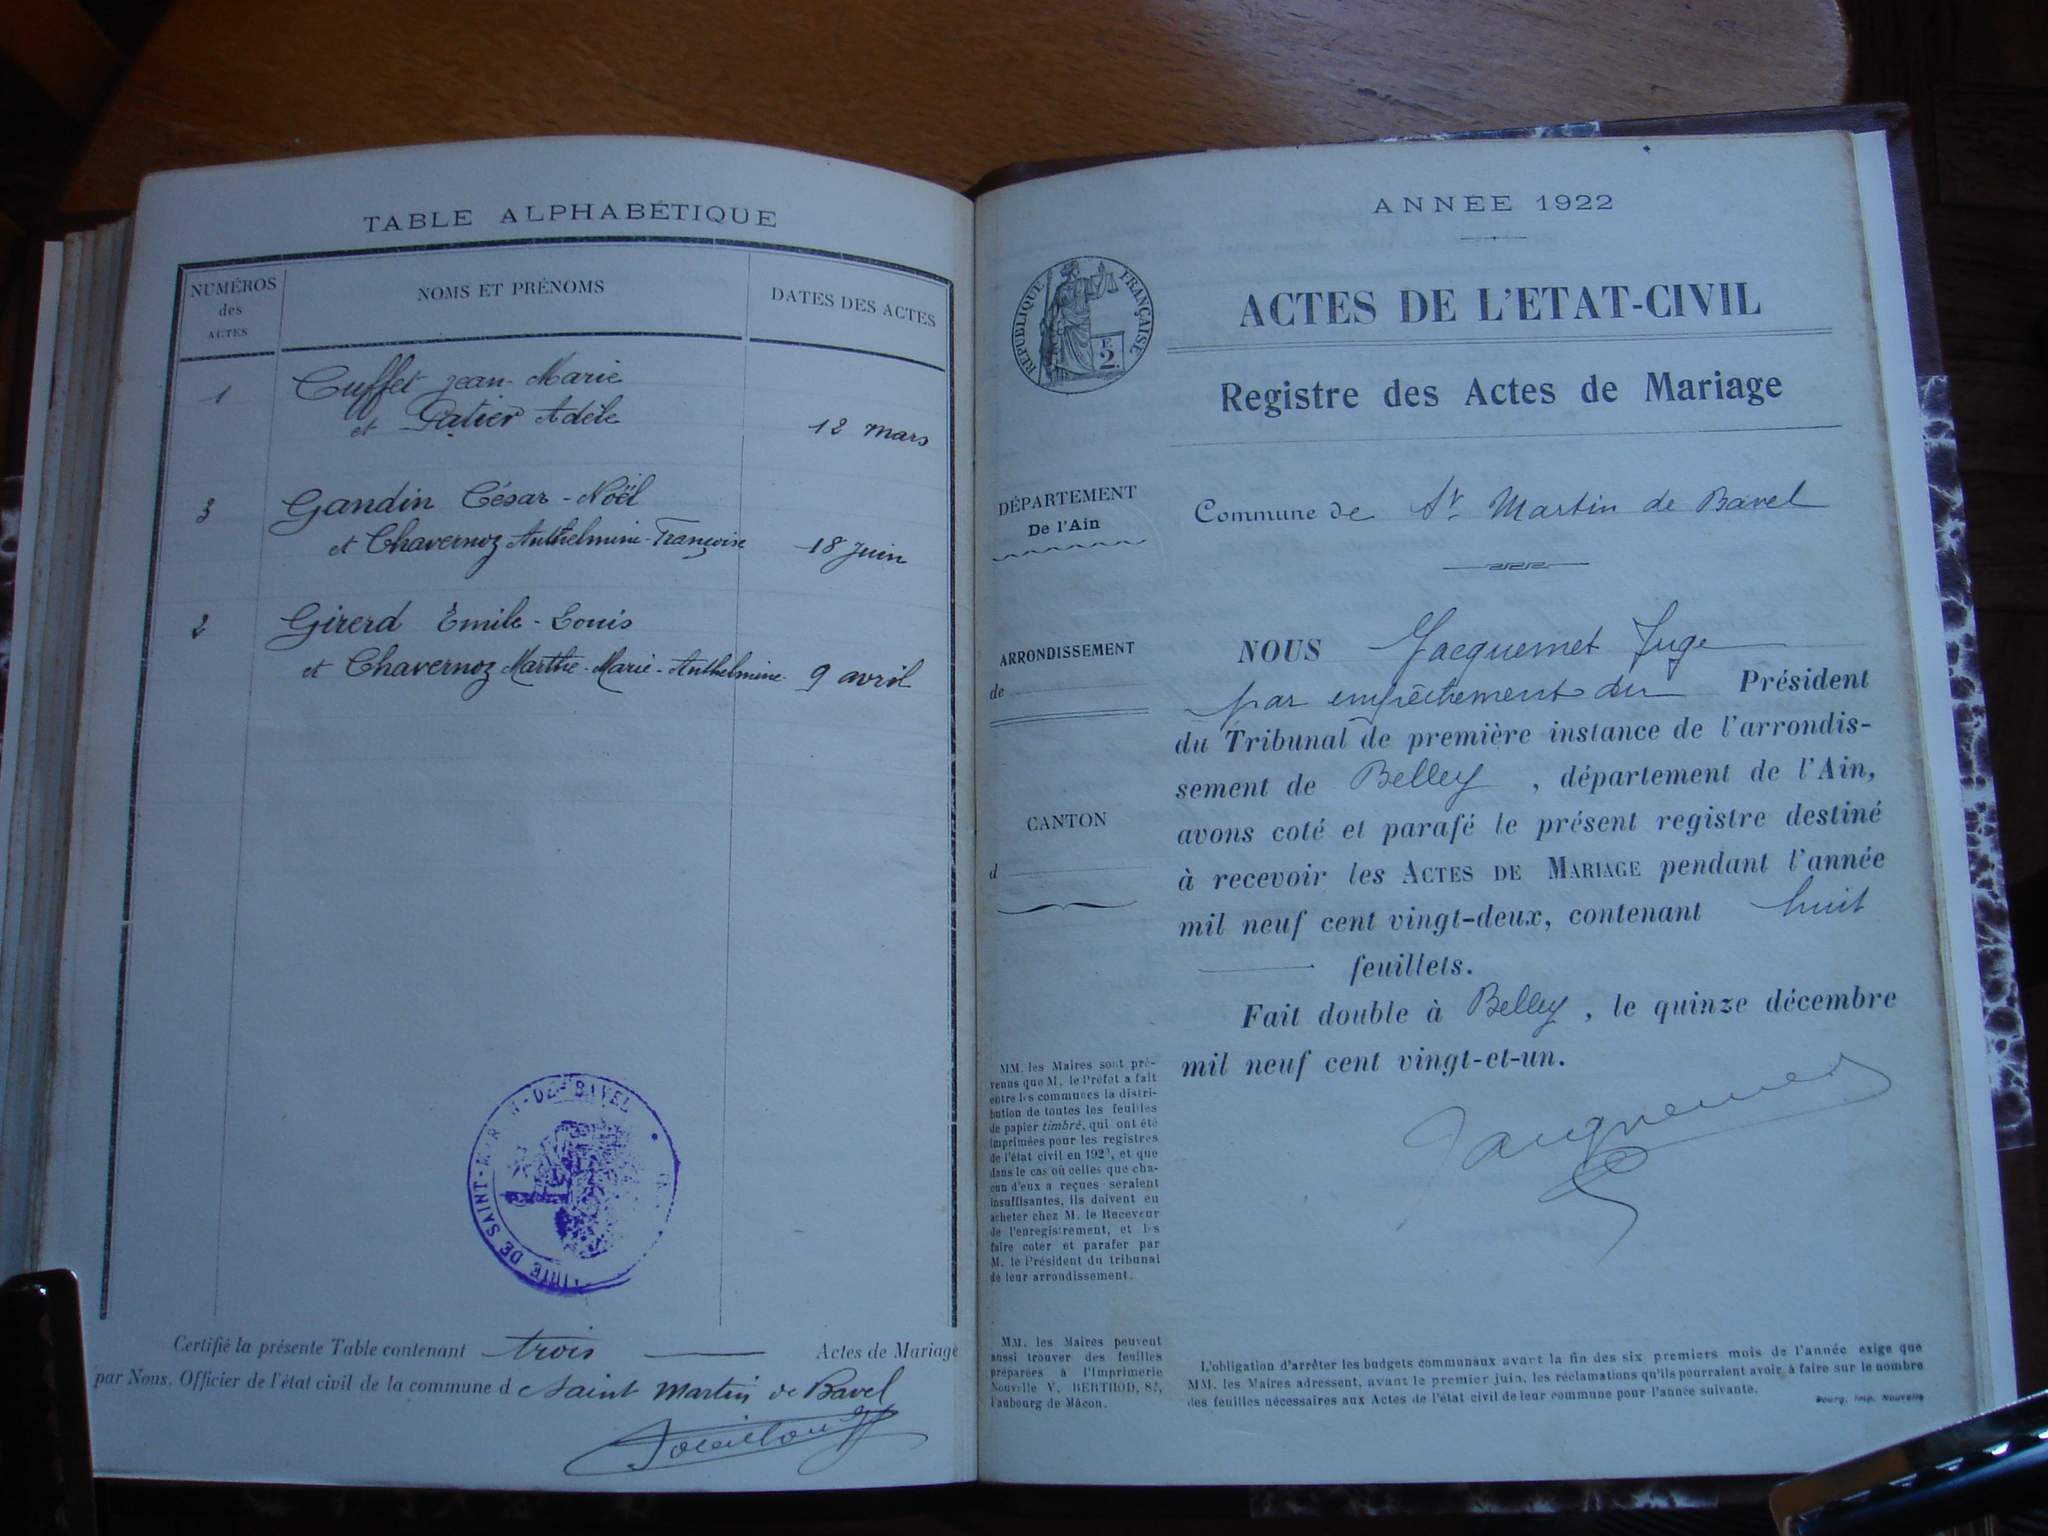 TABLE ALPHABÉTIQUE
NUMÉROS
des
ACTES
NOMS ET PRÉNOMS
DATES DES ACTES
1
Cuffet Jean-Marie
et Patier Adèle
12 mars
3
Gandin César-Noël
et Chavernoz Anthelmine-Françoise
18 Juin
2
Girerd Émile-Louis
et Chavernoz Marthe-Marie-Anthelmine
9 avril
Certifié la présente Table contenant trois Actes de Mariage
par Nous, Officier de l'état civil de la commune d Saint Martin de Bavel
ANNÉE 1922
RÉPUBLIQUE FRANÇAISE
F.
2.
ACTES DE L'ETAT-CIVIL
Registre des Actes de Mariage
DÉPARTEMENT
De l'Ain
Commune de St Martin de Bavel
ARRONDISSEMENT
de
CANTON
d
NOUS Jacquemet Juge
par empêchement du Président
du Tribunal de première instance de l'arrondis-
sement de Belley, département de l'Ain,
avons coté et parafé le présent registre destiné
à recevoir les ACTES DE MARIAGE pendant l'année
mil neuf cent vingt-deux, contenant huit
feuillets.
Fait double à Belley, le quinze décembre
mil neuf cent vingt-et-un.
Jacquemet
MM. les Maires sont pré-
venus que M. le Préfet a fait
entre les communes la distri-
bution de toutes les feuilles
de papier timbré, qui ont été
imprimées pour les registres
de l'état civil en 192, et que
dans le cas où celles que cha-
cun d'eux a reçues seraient
insuffisantes, ils doivent en
acheter chez M. le Receveur
de l'enregistrement, et les
faire coter et parafer par
M. le Président du tribunal
de leur arrondissement.
MM. les Maires peuvent
aussi trouver des feuilles
préparées à l'Imprimerie
Nouvelle V. BERTHOD, 82,
Faubourg de Mâcon.
L'obligation d'arrêter les budgets communaux avant la fin des six premiers mois de l'année exige que
MM. les Maires adressent, avant le premier juin, les réclamations qu'ils pourraient avoir à faire sur le nombre
des feuilles nécessaires aux Actes de l'état civil de leur commune pour l'année suivante.
Bourg, Imp. Nouvelle